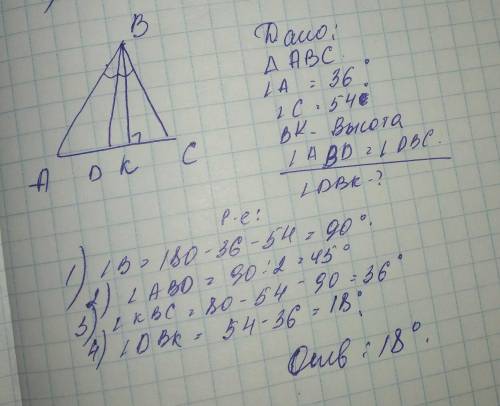 B
A D K C
Дано:
△ ABC.
∠A = 36°
∠C = 54°
BK - Высота
∠ABD = ∠DBC.
∠DBK - ?
Р-е:
1) ∠B = 180 - 36 - 54 = 90°.
2) ∠ABD = 90 : 2 = 45°
3) ∠KBC = 80 - 54 - 90 = 36°
4) ∠DBK = 54 - 36 = 18°.
Отв : 18°.